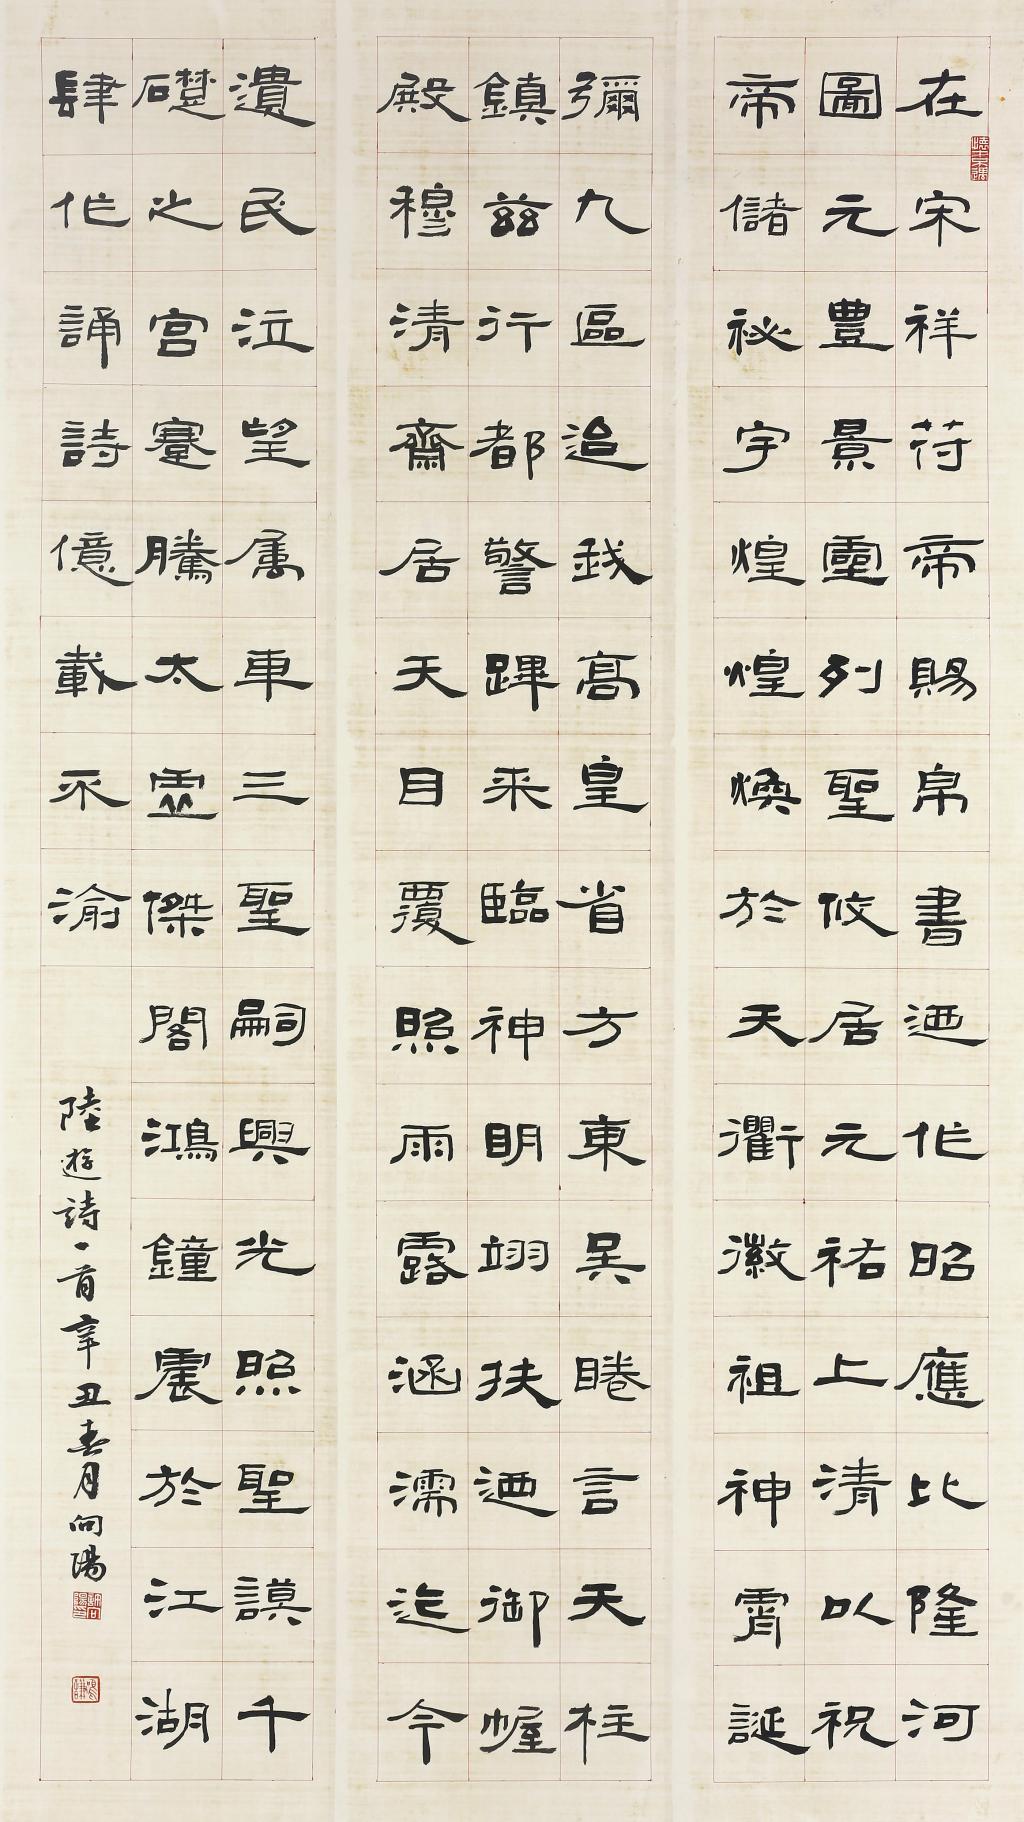 在宋祥符帝賜帛書迺作昭應比隆河
圖元豊景靈列聖攸居元祐上清以祝
帝儲祕宇煌煌煥於天衢徽祖神霄誕
彌九區迨我高皇省方東吳睠言天柱
鎮茲行都警蹕来臨神明翊扶迺御幄
殿穆清齋居天目覆照雨露涵濡迄今
遺民泣望属車三聖嗣興光照聖謨千
礎之宮蹇騰太虛傑閣鴻鐘震於江湖
肆作誦詩億載不渝
陸遊詩一首辛丑春月向陽